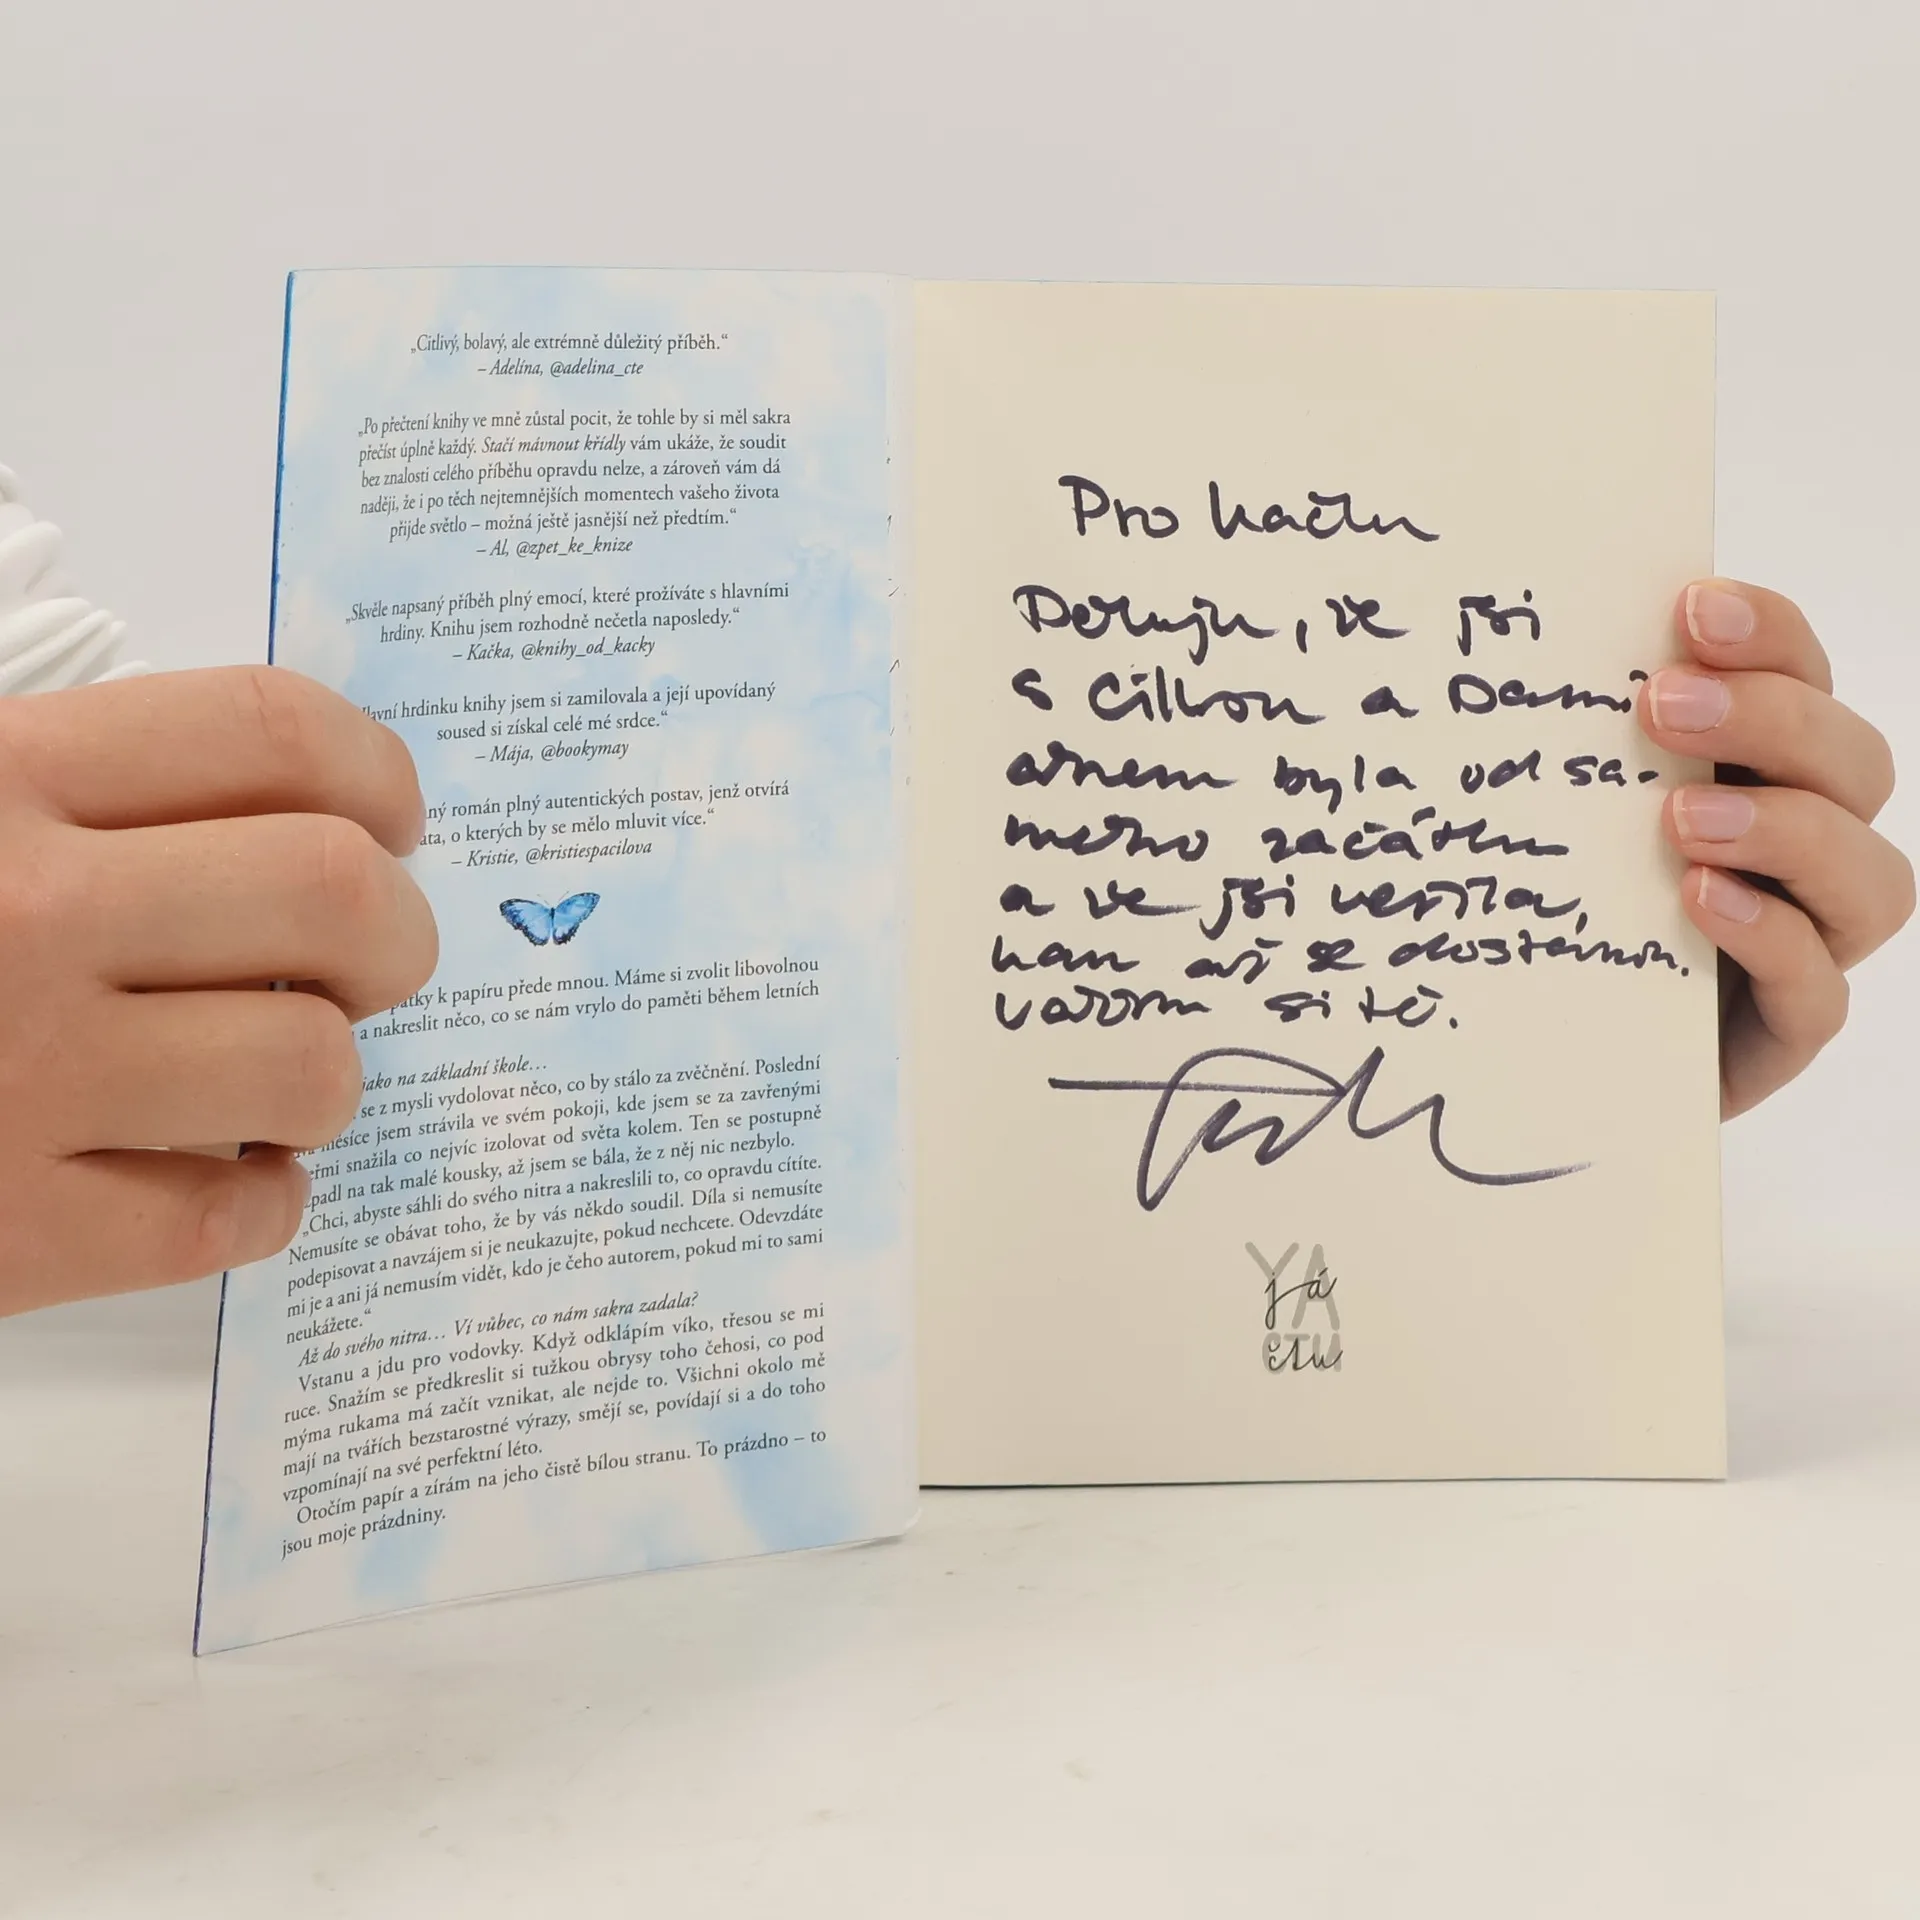 „Citlivý, bolavý, ale extrémně důležitý příběh.“
– Adelína, @adelina_cte
„Po přečtení knihy ve mně zůstal pocit, že tohle by si měl sakra
přečíst úplně každý. Stačí mávnout křídly vám ukáže, že soudit
bez znalosti celého příběhu opravdu nelze, a zároveň vám dá
naději, že i po těch nejtemnějších momentech vašeho života
přijde světlo – možná ještě jasnější než předtím.“
– Al, @zpet_ke_knize
„Skvěle napsaný příběh plný emocí, které prožíváte s hlavními
hrdiny. Knihu jsem rozhodně nečetla naposledy.“
– Kačka, @knihy_od_kacky
hrdinku knihy jsem si zamilovala a její upovídaný
soused si získal celé mé srdce.“
– Mája, @bookymay
román plný autentických postav, jenž otvírá
o kterých by se mělo mluvit více.“
– Kristie, @kristiespacilova
k papíru přede mnou. Máme si zvolit libovolnou
a nakreslit něco, co se nám vrylo do paměti během letních
jako na základní škole…
se z mysli vydolovat něco, co by stálo za zvěčnění. Poslední
měsíce jsem strávila ve svém pokoji, kde jsem se za zavřenými
snažila co nejvíc izolovat od světa kolem. Ten se postupně
na tak malé kousky, až jsem se bála, že z něj nic nezbylo.
„Chci, abyste sáhli do svého nitra a nakreslili to, co opravdu cítíte.
Nemusíte se obávat toho, že by vás někdo soudil. Díla si nemusíte
podepisovat a navzájem si je neukazujte, pokud nechcete. Odevzdáte
mi je a ani já nemusím vidět, kdo je čeho autorem, pokud mi to sami
neukážete.“
Až do svého nitra… Ví vůbec, co nám sakra zadala?
Vstanu a jdu pro vodovky. Když odklápím víko, třesou se mi
ruce. Snažím se předkreslit si tužkou obrysy toho čehosi, co pod
mýma rukama má začít vznikat, ale nejde to. Všichni okolo mě
mají na tvářích bezstarostné výrazy, smějí se, povídají si a do toho
vzpomínají na své perfektní léto.
Otočím papír a zírám na jeho čistě bílou stranu. To prázdno – to
jsou moje prázdniny.
Pro Kačku
Děkuju, že jsi
s Cilkou a Dami
ánem byla od sa-
mého začátku
a že jsi věřila,
kam až se dostanou.
Vážím si tě.
YA
já
ČTU
čtu